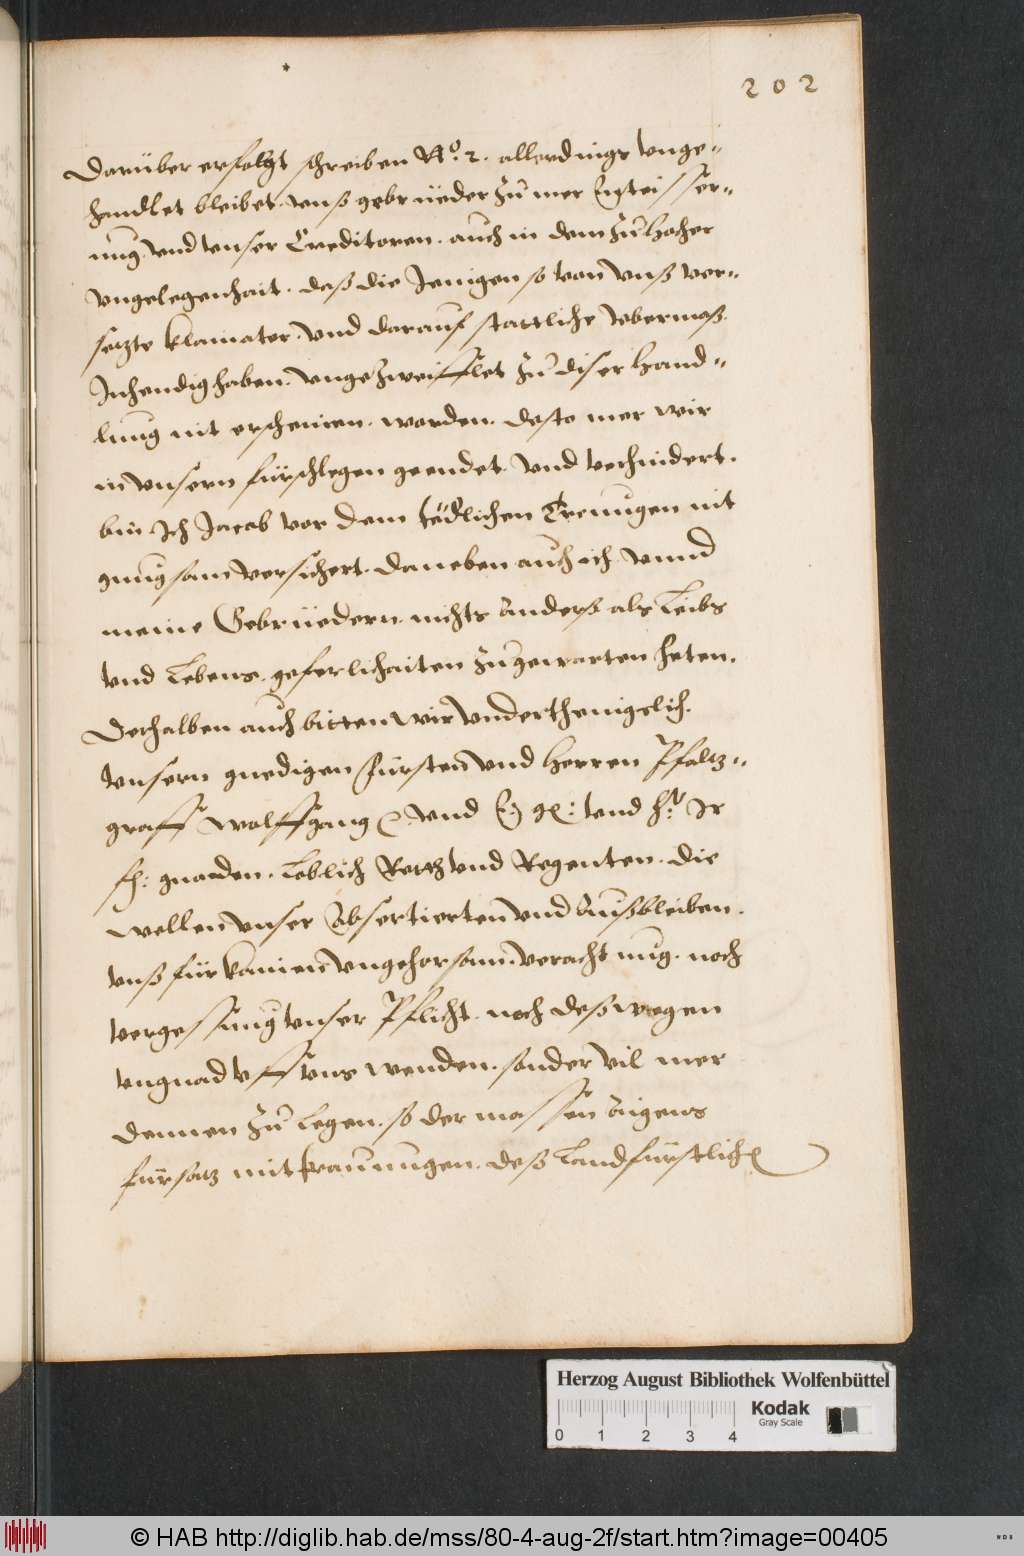 202
Darüber erfolgt schreiben No. 2. allerdings unge-
handlet bleibet. unß gebrüeder zu mer
nung. und unser Creditoren. auch in dem zu hocher
ungelegenhait. daß die Jenigen so von unß ver-
setzte klainater. und darauf stattliche ubermaß.
Inhendig haben. ungezweifflet zu diser hand-
lung nit erscheinen. werden. desto mer wir
in unsern fürschlegen geendet. und verhindert.
bin Ich Jacob vor dem tödlichen Trouugen nit
gnugsam versichert. daneben auch ich. unnd
meine Gebrüedern. nichts anderß als Leibs
und Lebens. geferlichaiten zugewarten heten.
Derhalben auch bitten wir underthenigelich.
unsern gnedigen Fürsten und Herren Pfaltz-
graff Wolffgang und und Ir
fh: gnaden. Loblich Reth und Regenten. die
wellen unser Absertierten und Außbleiben.
unß für kainen ungehorsam. verachtung. noch
vergessung unser Pflicht. noch deßwegen
ungnad uff uns wenden. sonder vil mer
dennen zu Legen. so dermassen aigens
fürsatz mit trauungen. deß Landfürstlich
Herzog August Bibliothek Wolfenbüttel
Kodak
Gray Scale
0 1 2 3 4
© HAB http://diglib.hab.de/mss/80-4-aug-2f/start.htm?image=00405